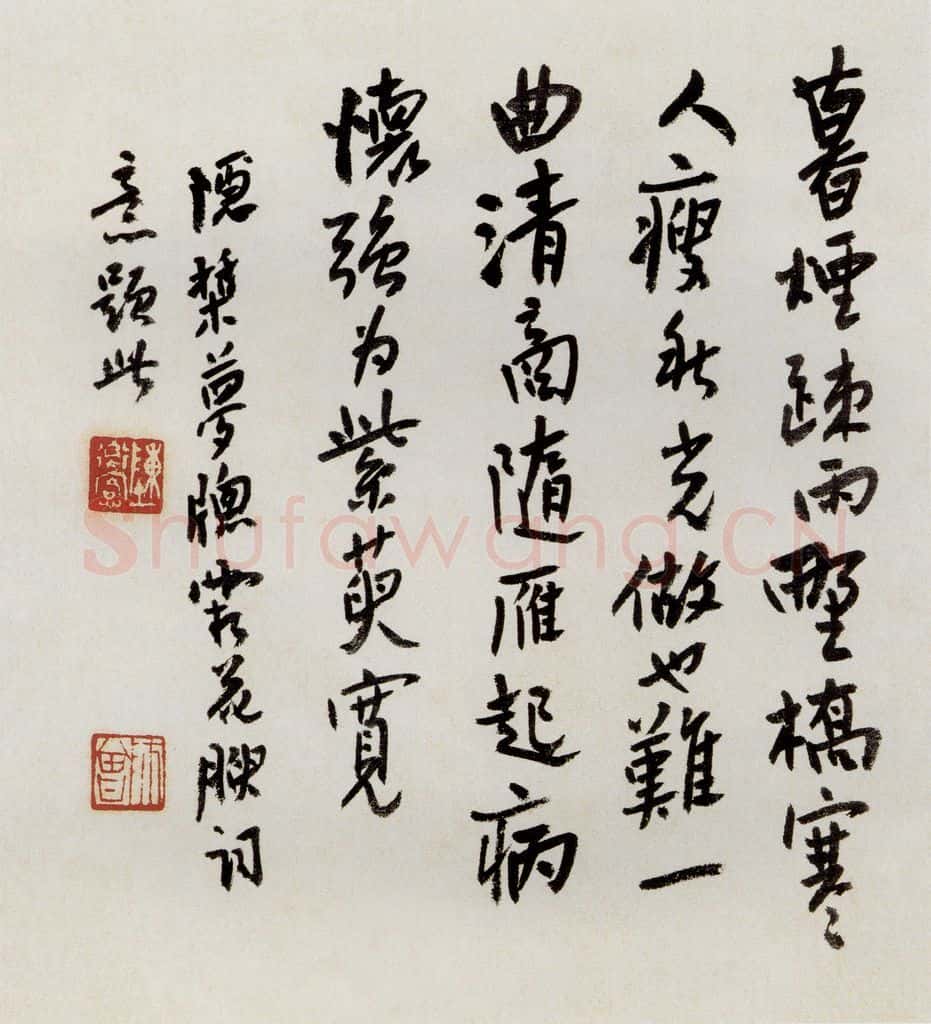 暮煙踈雨墅橋寒
人瘦秋光做也難一
曲清商隨雁起病
懷強为紫萸寬
隱槩夢牕霜花腴詞
意題此
Shufawang.CN